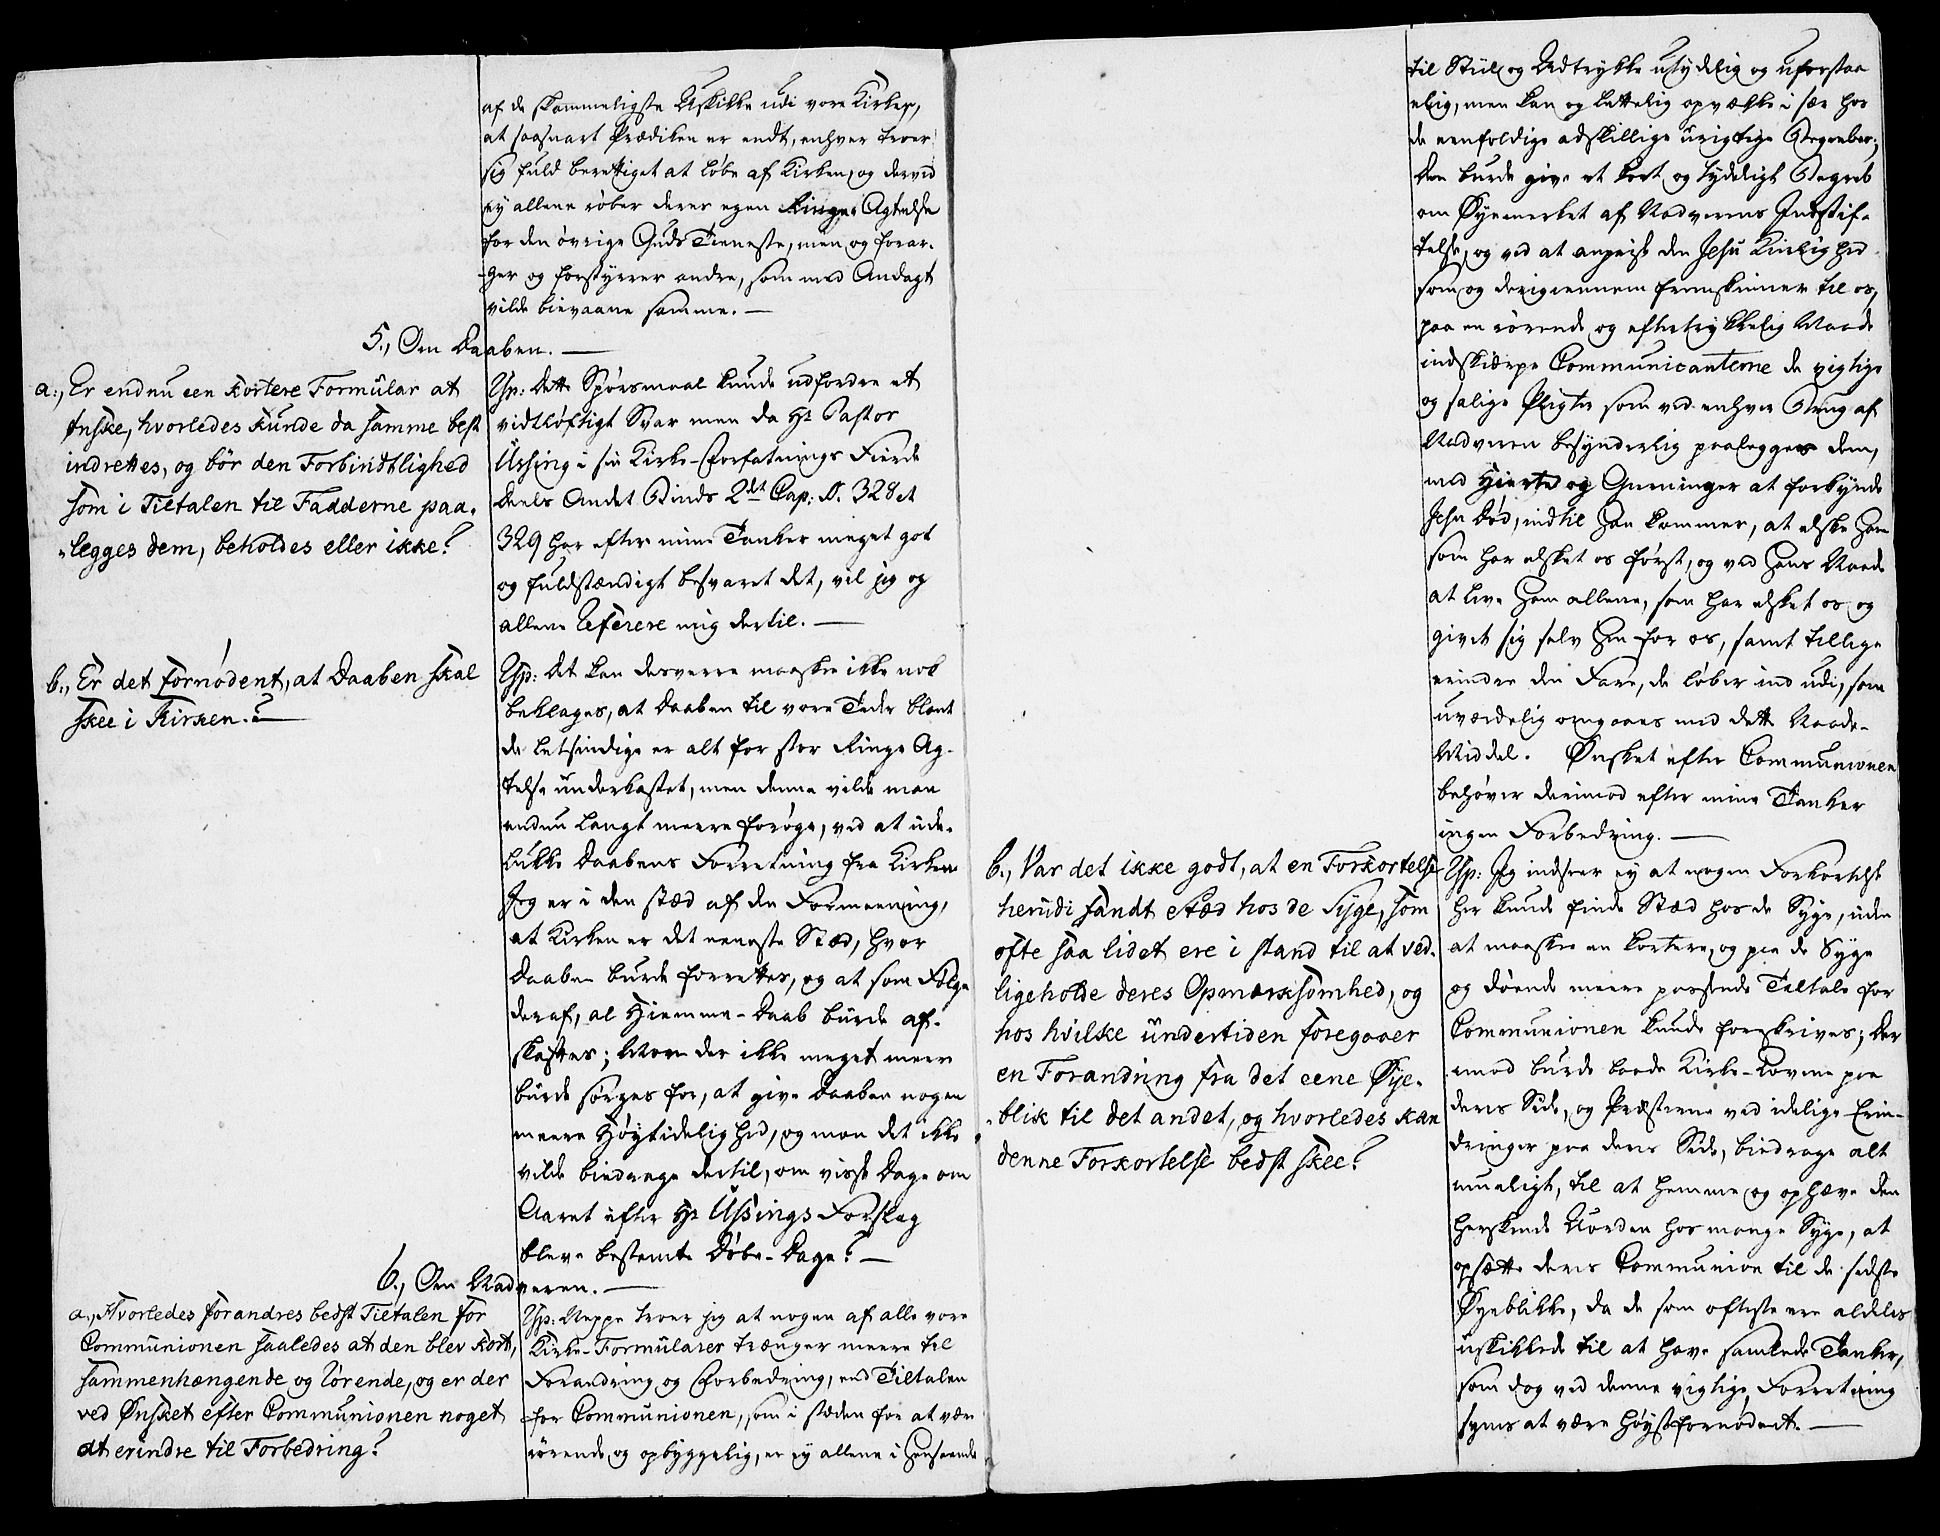 af de skammeligste Uskikke udi vore Kirker,
at saasnart Prædiken er endt, enhver troer
sig fuld berettiget at løbe af Kirken, og derved
ey allene røber deres egen Ringe Agtelse
for den øvrige Guds Tieneste, men og forar-
-ger og forstyrrer andre, som med Andagt
vilde bievaane samme. —
5., Om Daaben. —
a., Er endnu een kortere Formular at
ønske, hvorledes kunde da samme best
indrettes, og bør den Forbindtlighed
som i Tiltalen til Fadderne paa-
-legges dem, beholdes eller ikke?
Rsp: Dette Spørsmaal kunde udfordre et
vidtløftigt Svar men da Hr Pastor
Ussing i sin Kirke-Forfatnings Fierde
Deels Andet Binds 2det Cap: S. 328 et
329 har efter mine Tanker meget got
og fuldstændigt besvaret det, vil jeg og
allene referere mig dertil. —
b., Er det fornødent, at Daaben skal
skee i Kirken.? —
Rsp: Det kan desverre maaskee ikke nok
beklages, at Daaben til vore Tider blant
de letsindige er alt for stor Ringe Ag-
telse underkastet, men denne vilde man
endnu langt meere forøge, ved at ude-
lukke Daabens Forretning fra Kirken
Jeg er i den stæd af den Formeening,
at Kirken er det eeneste Stæd, hvor
Daaben burde forrettes, og at som Følge
deraf, al Hiemme-Daab burde af-
skaffes; Mon der ikke meget meere
burde sørges for, at give Daaben nogen
meere Høytidelighed, og mon det ikke
vilde biedrage dertil, om visse Dage om
Aaret efter Hr Ussings Forslag
bleve bestemte Døbe-Dage? —
6., Om Nadveren. —
a., Hvorledes forandres bedst Tiltalen for
Communionen saaledes at den blev kort,
sammenhængende og rørende, og er der
ved Ønsket efter Communionen noget
at erindre til Forbedring?
Rsp: Neppe troer jeg at nogen af alle vore
Kirke-Formularer trænger meere til
Forandring og Forbedring, end Tiltalen
for Communionen, som i stæden for at være
rørende og opbyggelig, er ey allene i Henseende
til Stiil og Udtrykke utydelig og uforstaa
elig, men kan og lettelig opvække i sær hos
de eenfoldige adskillige urigtige Begreber;
Den burde give et kort og tydeligt Begreb
om Øyemerket af Nadverens Indstif-
telse, og ved at anprise den Jesu Kierlighed
som og derigiennem fremskinner til os,
paa en rørende og eftertrykkelig Maade
indskierpe Communicanterne de vigtige
og salige Pligter som ved enhver Brug af
Nadveren besynderlig paalegges dem,
med Hierte og Gierninger at forkynde
Jesu Død, indtil Han kommer, at elske Ham
som har elsket os først, og ved Hans Naade
at leve Ham allene, som har elsket os og
givet sig selv Hen for os, samt tillige
erindre den Fare, de løber ind udi, som
uværdelig omgaaes med dette Naade-
Middel. Ønsket efter Communionen
behøver derimod efter mine Tanker
ingen Forbedring. —
b., Var det ikke godt, at en Forkortelse
herudi fandt Stæd hos de Syge, som
ofte saa lidet ere i stand til at ved-
ligeholde deres Opmærksomhed, og
hos hvilke undertiden foregaaer
en Forandring fra det eene Øye-
-blik til det andet, og hvorledes kan
denne Forkortelse bedst skee?
Rsp: Jeg indseer ey at nogen Forkortelse
her kunde finde Stæd hos de Syge, uden
at maaskee en kortere, og paa de Syge
og døende meere passende Tiltale for
Communionen kunde foreskrives; Der
imod burde baade Kirke-Lovene paa
deres Side, og Præsterne ved idelige Erin-
dringer paa deres Side, biedrage alt
mueligt, til at hemme og ophæve den
herskende Uorden hos mange Syge, at
opsætte deres Communion til de sidste
Øyeblikke, da de som oftest ere aldeles
uskikkede til at have samlede Tanker,
som dog ved denne vigtige Forretning
synes at være høyst fornødent. —